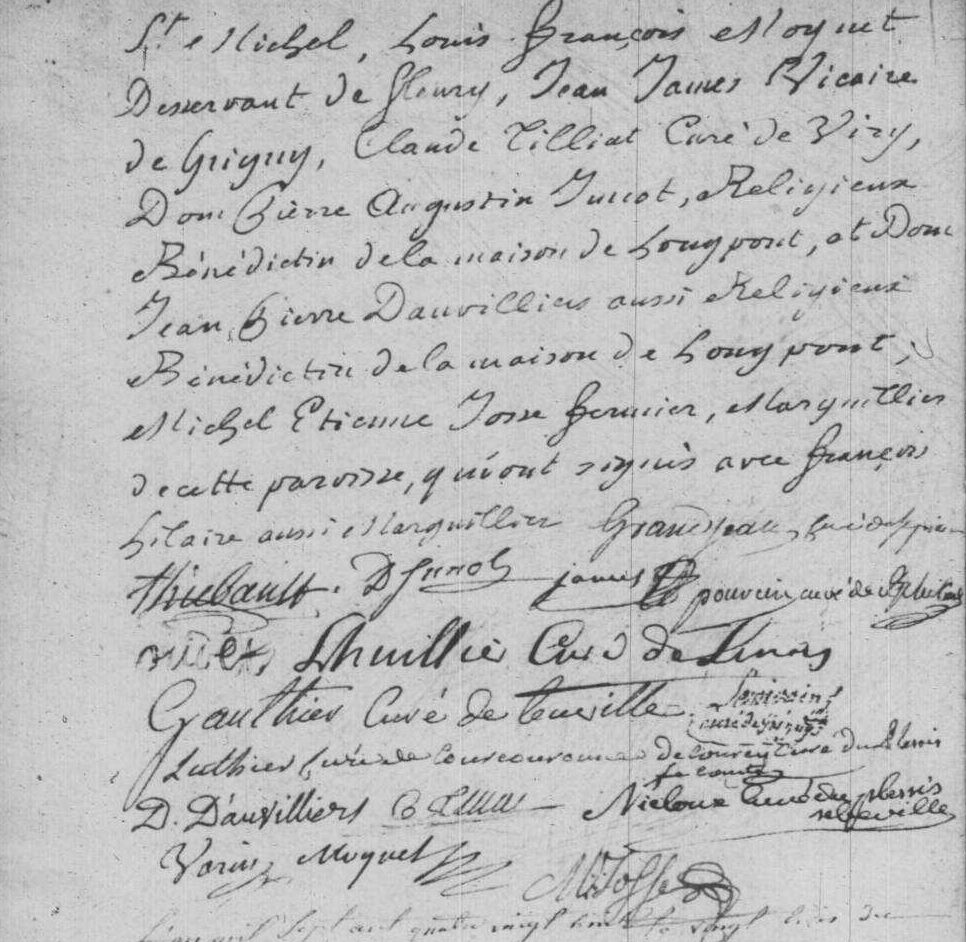 St. Michel, Louis François Moquet
Desservant de fleury, Jean James Vicaire
de Grigny, Claude Tilliat Curé de Viry,
Dom Pierre Augustin Junot, Religieux
Bénédictin de la maison de Longpont, et Dom
Jean Pierre Dauvilliers aussi Religieux
Bénédictin de la maison de Longpont,
Michel Etienne Josse fermier, Marguillier
de cette paroisse, qui ont signés avec françois
hilaire aussi Marguillier Grandjean
thiebault. D Junot james pouvcin curé de
Lhuillier Curé de Linas
Gauthier Curé de leuville
Luthier Curé de courcouronne de courcy Curé du Plessis
le comte
D. Dauvilliers Nicloux Curé du plessis
Varin Moquet
M E Josse
mil sept cent quatre vingt le vingt